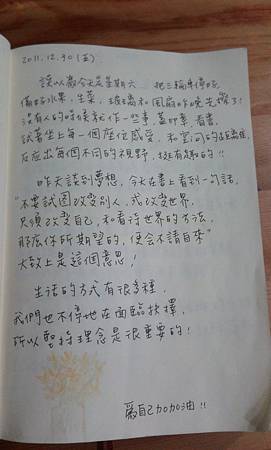 2011.12.30(五)
誤以為今天是星期六 把三輪車停好,
備好水果,生菜,玻璃和風扇昨晚先擦了!
沒有人的時候就作一些事,蓋印章,看書,
試著坐上每一個座位感受,和空間的距離
反應出每個不同的視野,挺有趣的!!
昨天談到夢想,今天在書上看到一句話,
"不要試圖改變別人,或改變世界,
只須改變自己,和看待世界的方法,
那麼你所期望的,便會不請自來"
大致上是這個意思!
生活的方式有很多種,
我們也不停地在面臨抉擇,
所以堅持理念是很重要的!
為自己加加油!!